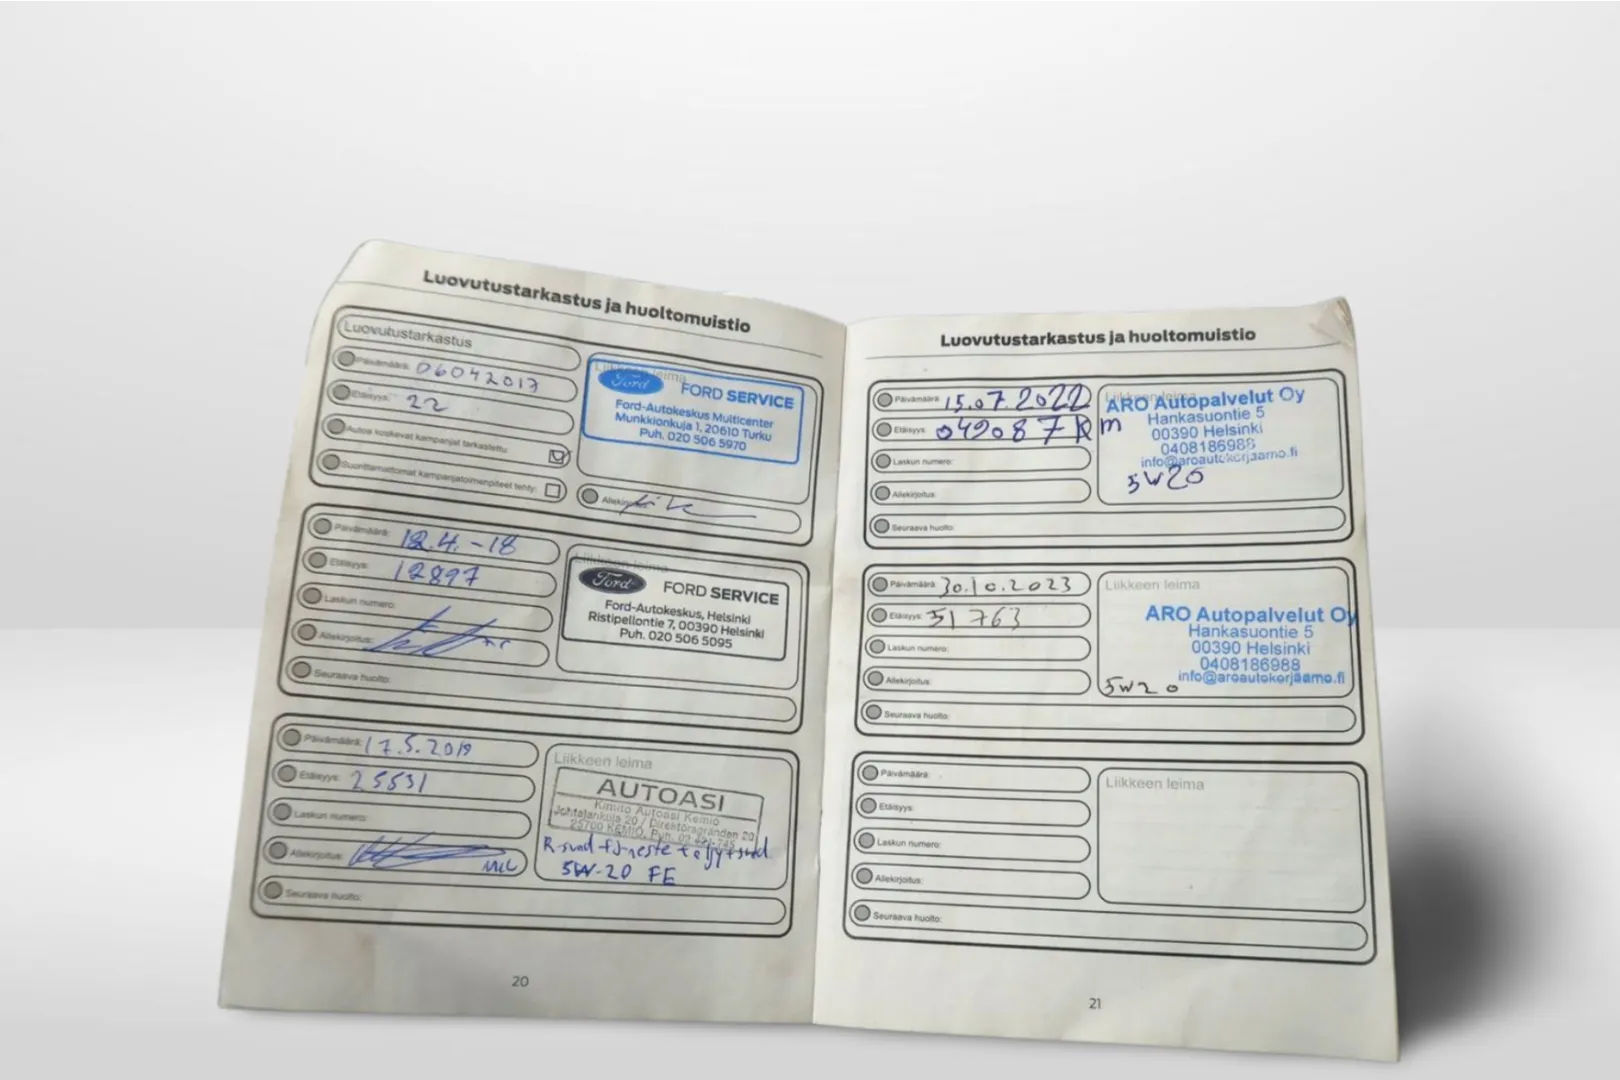 Luovutustarkastus ja huoltomuistio
Luovutustarkastus
Päivämäärä: 06042017
Etäisyys: 22
Autoa koskevat kampanjat tarkastettu:
Suorittamattomat kampanjatoimenpiteet tehty:
Liikkeen leima
Ford FORD SERVICE
Ford-Autokeskus Multicenter
Munkkionkuja 1, 20610 Turku
Puh. 020 506 5970
Allekirjoitus:
Päivämäärä: 12.4.-18
Etäisyys: 12897
Laskun numero:
Allekirjoitus:
Seuraava huolto:
Liikkeen leima
Ford FORD SERVICE
Ford-Autokeskus, Helsinki
Ristipellontie 7, 00390 Helsinki
Puh. 020 506 5095
Päivämäärä: 17.5.2019
Etäisyys: 25531
Laskun numero:
Allekirjoitus:
Seuraava huolto:
Liikkeen leima
AUTOASI
Kimito Autoasi Kemiö
Johtajankuja 20 / Direktörsgränden 20
25700 KEMIÖ, Puh. 02
R-suod + J-neste + öljy + suod.
5W-20 FE
20
Luovutustarkastus ja huoltomuistio
Päivämäärä: 15.07.2022
Etäisyys: 049087 Km
Laskun numero:
Allekirjoitus
Seuraava huolto:
Liikkeen leima
ARO Autopalvelut Oy
Hankasuontie 5
00390 Helsinki
0408186988
info@aroautokorjaamo.fi
5W20
Päivämäärä 30.10.2023
Etäisyys: 51 763
Laskun numero:
Allekirjoitus:
Seuraava huolto:
Liikkeen leima
ARO Autopalvelut Oy
Hankasuontie 5
00390 Helsinki
0408186988
info@aroautokorjaamo.fi
5W20
Päivämäärä:
Etäisyys:
Laskun numero:
Allekirjoitus:
Seuraava huolto:
Liikkeen leima
21